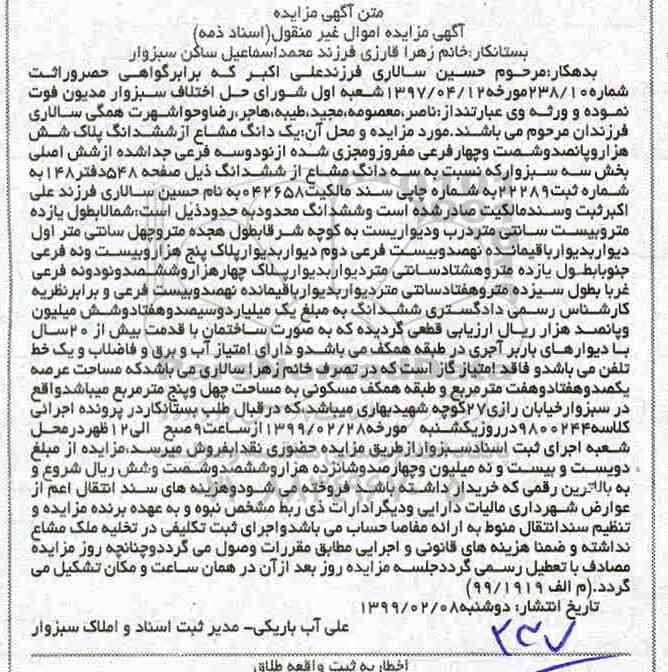 متن آگهی مزایده
آگهی مزایده اموال غیر منقول(اسناد ذمه)
بستانکار:خانم زهرا قارزی فرزند محمداسماعیل ساکن سبزوار
بدهکار:مرحوم حسین سالاری فرزندعلی اکبر که برابرگواهی حصروراثت
شماره۲۳۸/۱۰مورخه۱۳۹۷/۰۴/۱۲شعبه اول شورای حل اختلاف سبزوار مدیون فوت
نموده و ورثه وی عبارتنداز:ناصر،معصومه،مجید،طیبه،هاجر،رضاوحواشهرت همگی سالاری
فرزندان مرحوم می باشند.مورد مزایده و محل آن:یک دانگ مشاع ازششدانگ پلاک شش
هزاروپانصدوشصت وچهارفرعی مفروزومجزی شده ازنودوسه فرعی جداشده ازشش اصلی
بخش سه سبزوارکه نسبت به سه دانگ مشاع از ششدانگ ذیل صفحه ۵۴۸دفتر۱۴۸به
شماره ثبت۲۲۲۸۹به شماره چاپی سند مالکیت۰۴۲۶۵۸به نام حسین سالاری فرزند علی
اکبرثبت وسندمالکیت صادرشده است وششدانگ محدودبه حدودذیل است:شمالابطول یازده
متروبیست سانتی متردرب ودیواریست به کوچه شرقابطول هجده متروچهل سانتی متر اول
دیواربدیوارباقیمانده نهصدوبیست فرعی دوم دیواربدیوارپلاک پنج هزاروبیست ونه فرعی
جنوبابطول یازده متروهشتادسانتی متردیواربدیوارپلاک چهارهزاروششصدونودونه فرعی
غربا بطول سیزده متروهفتادسانتی متردیواربدیوارباقیمانده نهصدوبیست فرعی و برابرنظریه
کارشناس رسمی دادگستری ششدانگ به مبلغ یک میلیاردوسیصدوهفتادوشش میلیون
وپانصد هزار ریال ارزیابی قطعی گردیده که به صورت ساختمان با قدمت بیش از ۲۰سال
با دیوارهای باربر آجری در طبقه همکف می باشدو دارای امتیاز آب و برق و فاضلاب و یک خط
تلفن می باشدو فاقد امتیاز گاز است که در تصرف خانم زهرا سالاری می باشدکه مساحت عرصه
یکصدوهفتادوهفت مترمربع و طبقه همکف مسکونی به مساحت چهل وپنج مترمربع میباشدواقع
در سبزوارخیابان رازی۲۷کوچه شهیدبهاری میباشد،که درقبال طلب بستانکاردر پرونده اجرائی
کلاسه۹۸۰۰۲۴۴درروزیکشنبه مورخه۱۳۹۹/۰۲/۲۸ازساعت۹صبح الی۱۲ظهردرمحل
شعبه اجرای ثبت اسنادسبزوارازطریق مزایده حضوری نقدابفروش میرسد،مزایده از مبلغ
دویست و بیست و نه میلیون وچهارصدوشانزده هزاروششصدوشصت وشش ریال شروع و
به بالاترین رقمی که خریدار داشته باشد فروخته می شودوهزینه های سند انتقال اعم از
عوارض شهرداری مالیات دارایی ودیگرادارات ذی ربط مشخص نبوه و به عهده برنده مزایده و
تنظیم سندانتقال منوط به ارائه مفاصا حساب می باشدواجرای ثبت تکلیفی در تخلیه ملک مشاع
نداشته و ضمنا هزینه های قانونی و اجرایی مطابق مقررات وصول می گرددوچنانچه روز مزایده
مصادف با تعطیل رسمی گرددجلسه مزایده روز بعد ازآن در همان ساعت و مکان تشکیل می
گردد.(م الف ۹۹/۱۹۱۹)
تاریخ انتشار: دوشنبه۱۳۹۹/۰۲/۰۸
علی آب باریکی- مدیر ثبت اسناد و املاک سبزوار
اخطاریه ثبت واقعه طلاق